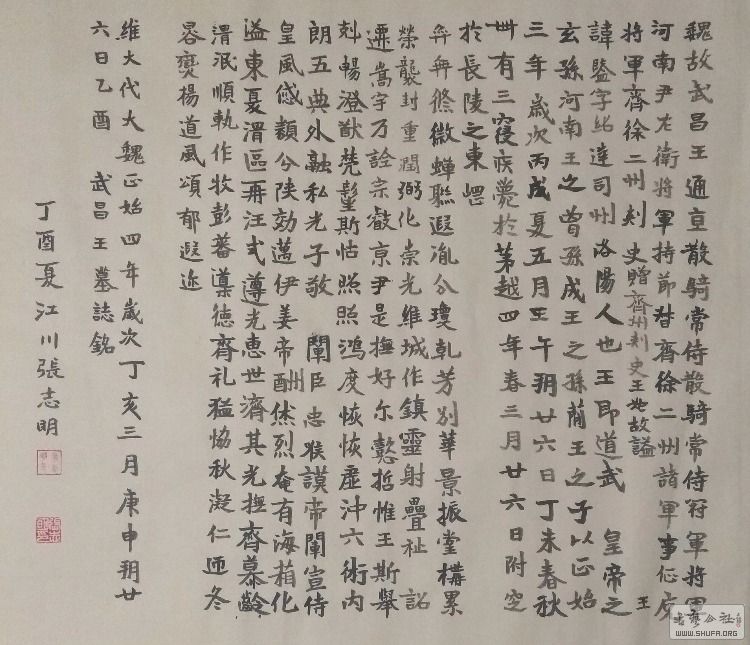 魏故武昌王通直散騎常侍散騎常侍冠軍將軍
河南尹左衛將軍持節督齊徐二州諸軍事征虜
將軍齊徐二州刺史贈齊州刺史王如故謚王
諱鑒字紹達司州洛陽人也王即道武 皇帝之
玄孫河南王之曾孫成王之孫蕳王之子以正始
三年歲次丙戌夏五月壬午朔廿六日丁未春秋
卌有三寑疾薨於第越四年春三月廿六日附空
於長陵之東堽
弈弈絛徽蟬聮遐胤分瓊乹芳別華景振堂構累
榮襲封重潤弼化崇光維城作鎮靈射疊祉 詔
遷嵩宇乃詮宗㪉京尹是撫好尔懿哲惟王斯舉
剋暢澄猷煢髽斯怙照照鴻度恢恢虛沖六術内
朗五典外融私光子敬 闡臣忠猴謨帝闡宣侍
皇風㤅纇分陝効邁伊姜帝酬㷼烈奄有海葙化
溢東夏渭區再汪式遵光惠世濟其光撫齊慕齡
渭泯順軌作牧彭蕃導德齊礼猛恊秋凝仁迊冬
晷爕楊道風頌郁遐迩
維大代大魏正始四年歲次丁亥三月庚申朔廿
六日乙酉 武昌王墓誌銘
丁酉夏江川張志明
書藝公社
WWW.SHUFA.ORG